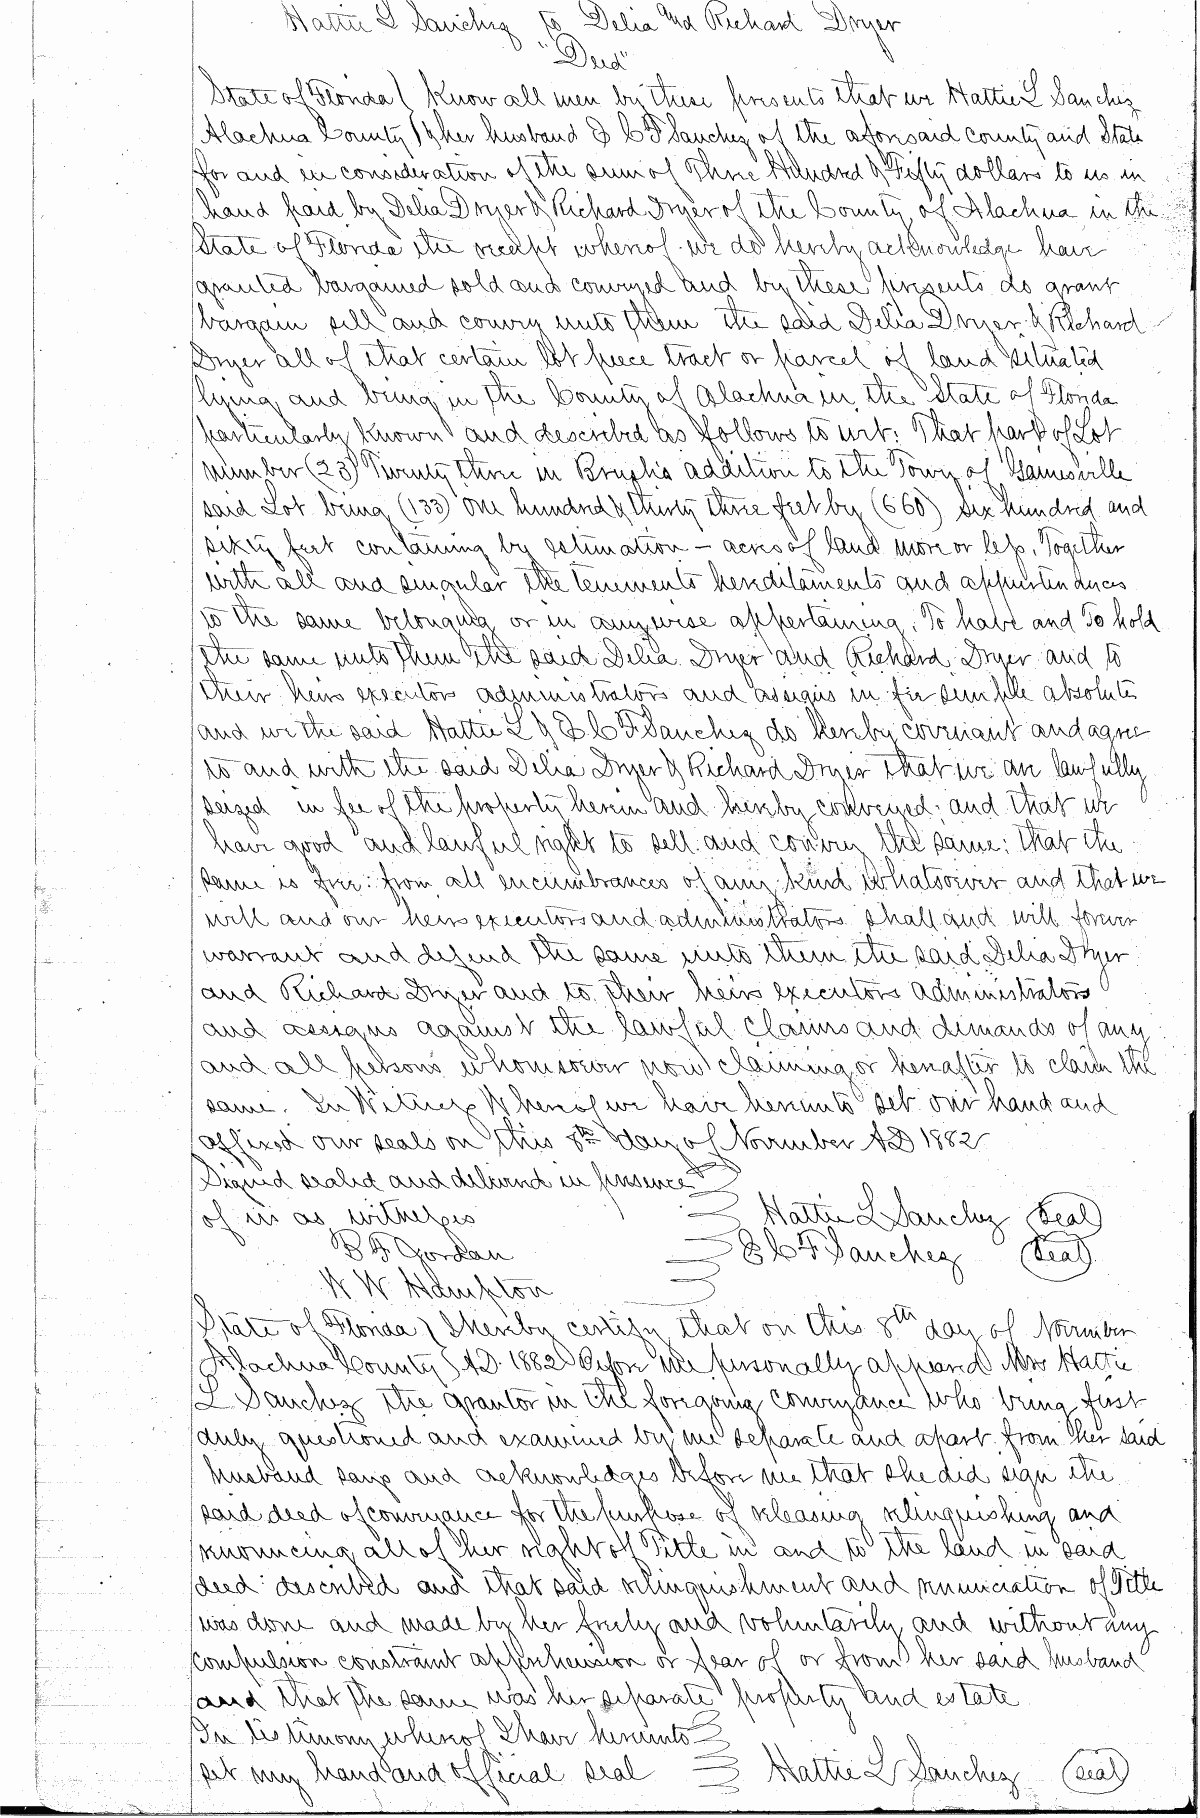 Hattie L Sanchez to Delia and Richard Dryer
"Deed"
State of Florida ( Know all men by these presents that we Hattie L Sanchez
Alachua County ) & her husband E C F Sanchez of the aforesaid county and State
for and in consideration of the sum of Three Hundred & Fifty dollars to us in
hand paid by Delia Dryer & Richard Dryer of the County of Alachua in the
State of Florida the receipt whereof we do hereby acknowledge have
granted bargained sold and conveyed and by these presents do grant
bargain sell and convey unto them the said Delia Dryer & Richard
Dryer all of that certain lot piece tract or parcel of land situated
lying and being in the County of Alachua in the State of Florida
particularly known and described as follows to wit: That part of Lot
number (23) Twenty three in Brush's addition to the Town of Gainesville
said Lot being (133) one hundred & thirty three feet by (660) six hundred and
sixty feet containing by estimation – acres of land more or less. Together
with all and singular the tenements hereditaments and appurtenances
to the same belonging or in anywise appertaining. To have and To hold
the same unto them the said Delia Dryer and Richard Dryer and to
their heirs executors administrators and assigns in fee simple absolute
and we the said Hattie L & E C F Sanchez do hereby covenant and agree
to and with the said Delia Dryer & Richard Dryer that we are lawfully
seized in fee of the property herein and hereby conveyed; and that we
have good and lawful right to sell and convey the same: that the
same is free: from all encumbrances of any kind whatsoever and that we
will and our heirs executors and administrators shall and will forever
warrant and defend the same unto them the said Delia Dryer
and Richard Dryer and to their heirs executors administrators
and assigns against the lawful claims and demands of any
and all persons whomsoever now claiming or hereafter to claim the
same. In Witness Whereof we have hereunto set our hand and
affixed our seals on this 8th day of November AD 1882
Signed sealed and delivered in presence
of us as witnesses Hattie L Sanchez (Seal)
B F Jordan E C F Sanchez (Seal)
W W Hampton
State of Florida ) I hereby certify that on this 8th day of November
Alachua County ) A.D. 1882 Before me personally appeared Mrs Hattie
L Sanchez the grantor in the foregoing conveyance who being first
duly questioned and examined by me separate and apart from her said
husband says and acknowledges before me that she did sign the
said deed of conveyance for the purpose of releasing relinquishing and
renouncing all of her right of Title in and to the land in said
deed described and that said relinquishment and renunciation of Title
was done and made by her freely and voluntarily and without any
compulsion constraint apprehension or fear of or from her said husband
and that the same was her separate property and estate
In testimony whereof I have hereunto
set my hand and official seal Hattie L Sanchez (seal)